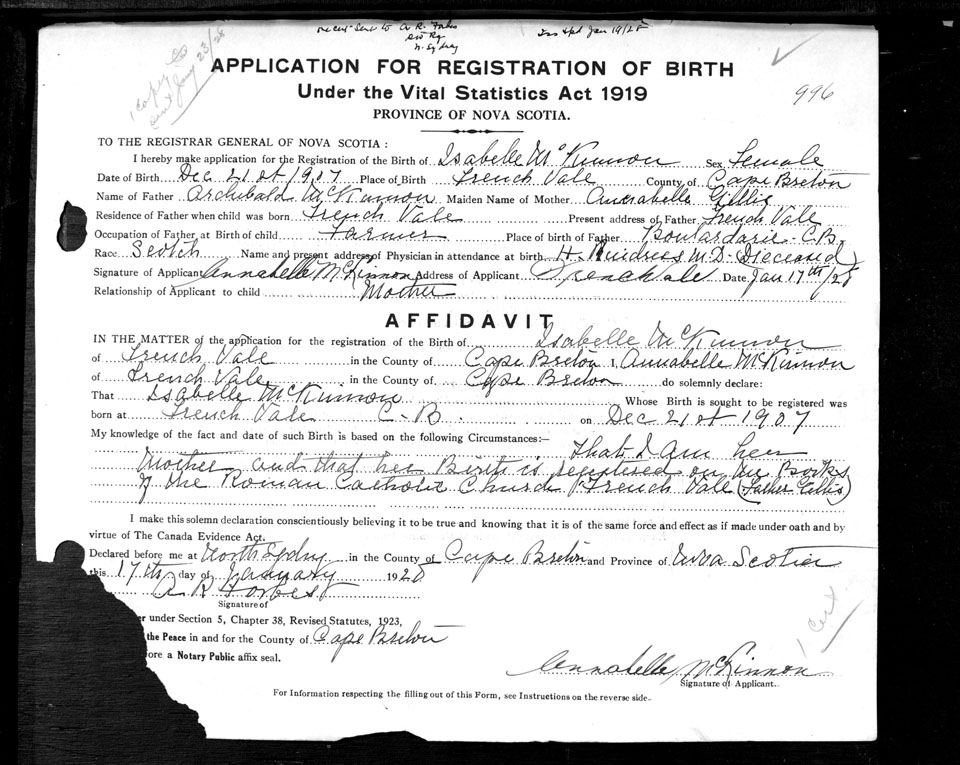 one cert sent to A R Forbes
Div Rg
N. Sydney
Ins Spd Jan 19/28
1 copy &
cert Jany 23/28
APPLICATION FOR REGISTRATION OF BIRTH
Under the Vital Statistics Act 1919
996
PROVINCE OF NOVA SCOTIA.
TO THE REGISTRAR GENERAL OF NOVA SCOTIA :
I hereby make application for the Registration of the Birth of Isabelle McKinnon Sex Female
Date of Birth Dec 21st 1907 Place of Birth French Vale County of Cape Breton
Name of Father Archibald McKinnon Maiden Name of Mother Annabelle Gillis
Residence of Father when child was born French Vale Present address of Father French Vale
Occupation of Father at Birth of child Farmer Place of birth of Father Boulardarie - C.B.
Race Scotch Name and present address of Physician in attendance at birth H. M.D. Deceased
Signature of Applicant Annabelle McKinnon Address of Applicant French Vale Date Jan 17th/28
Relationship of Applicant to child Mother
AFFIDAVIT
IN THE MATTER of the application for the registration of the Birth of Isabelle McKinnon
of French Vale in the County of Cape Breton I, Annabelle McKinnon
of French Vale in the County of Cape Breton do solemnly declare:
That Isabelle McKinnon Whose Birth is sought to be registered was
born at French Vale C-B. on Dec 21st 1907
My knowledge of the fact and date of such Birth is based on the following Circumstances:— That I Am her
Mother and that her Birth is registered on the Books
of the Roman Catholic Church French Vale (Father Gillis)
I make this solemn declaration conscientiously believing it to be true and knowing that it is of the same force and effect as if made under oath and by
virtue of The Canada Evidence Act.
Declared before me at North Sydney in the County of Cape Breton and Province of Nova Scotia
this 17th day of January 1928
A R Forbes
Signature of
er under Section 5, Chapter 38, Revised Statutes, 1923,
the Peace in and for the County of Cape Breton
ore a Notary Public affix seal.
1 Cert
Annabelle McKinnon
Signature of Applicant.
For Information respecting the filling out of this Form, see Instructions on the reverse side.